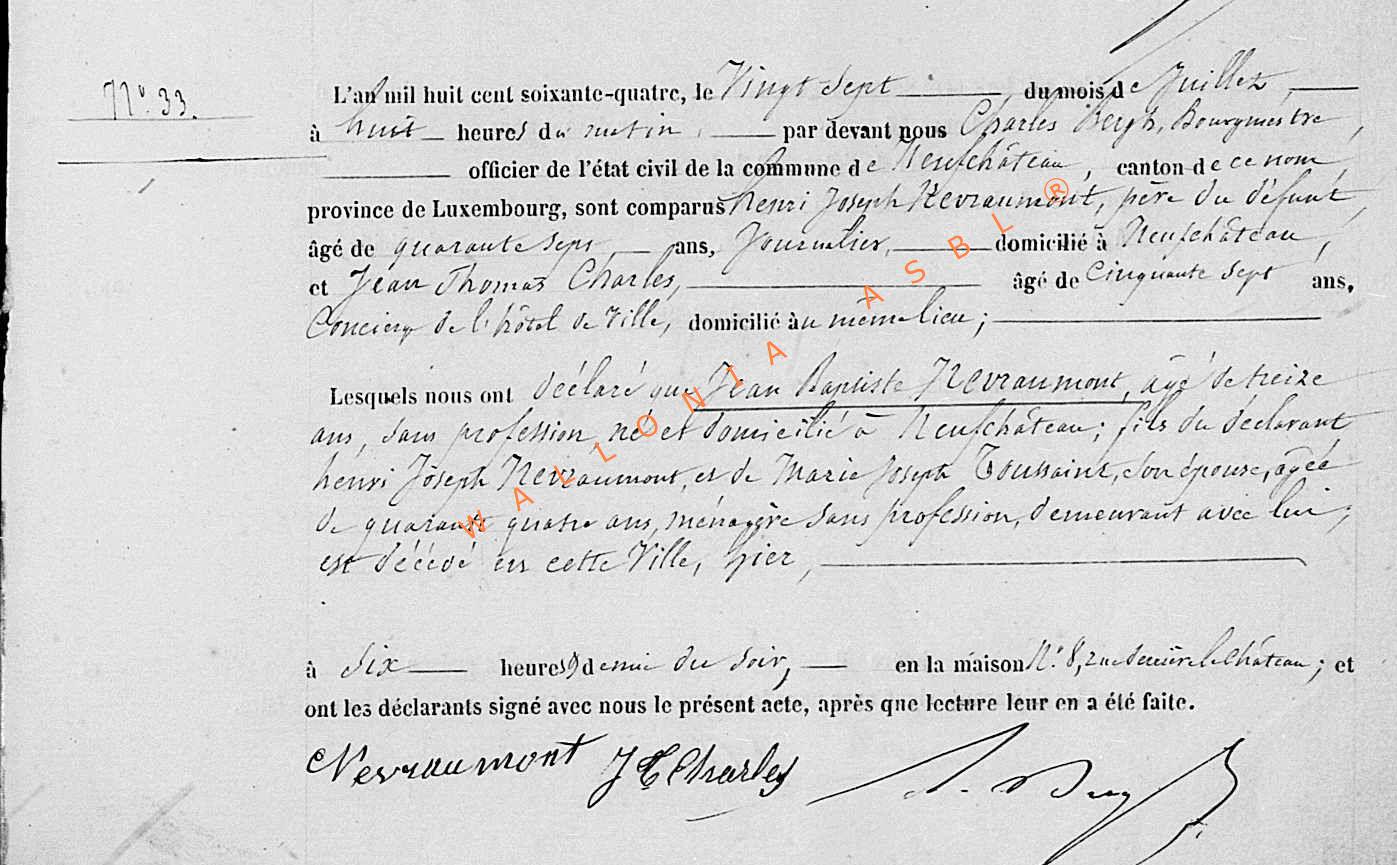 N° 33.
L'an mil huit cent soixante-quatre, le Vingt Sept du mois de Juillet,
à huit heures du matin, par devant nous Charles Bergh, Bourgmestre,
officier de l'état civil de la commune de Neufchâteau, canton de ce nom,
province de Luxembourg, sont comparus henri Joseph Nevraumont, père du défunt,
âgé de quarante sept, ans, Journalier, domicilié à Neufchâteau,
et Jean Thomas Charles, âgé de Cinquante Sept ans,
Concierge de l'hôtel de Ville, domicilié au même lieu;
Lesquels nous ont déclaré que Jean Baptiste Nevraumont, agé de treize
ans, sans profession, né et domicilié à Neufchâteau; fils du déclarant
henri Joseph Nevraumont, et de Marie Joseph Toussaint, son épouse, agée
de quarante quatre ans, ménagère sans profession, demeurant avec lui;
est décédé en cette Ville, hier,
à Six heures demie du soir, en la maison N° 8, rue derrière le Château; et
ont les déclarants signé avec nous le présent acte, après que lecture leur en a été faite.
Nevraumont JT Charles
WALLONIA ASBL ®